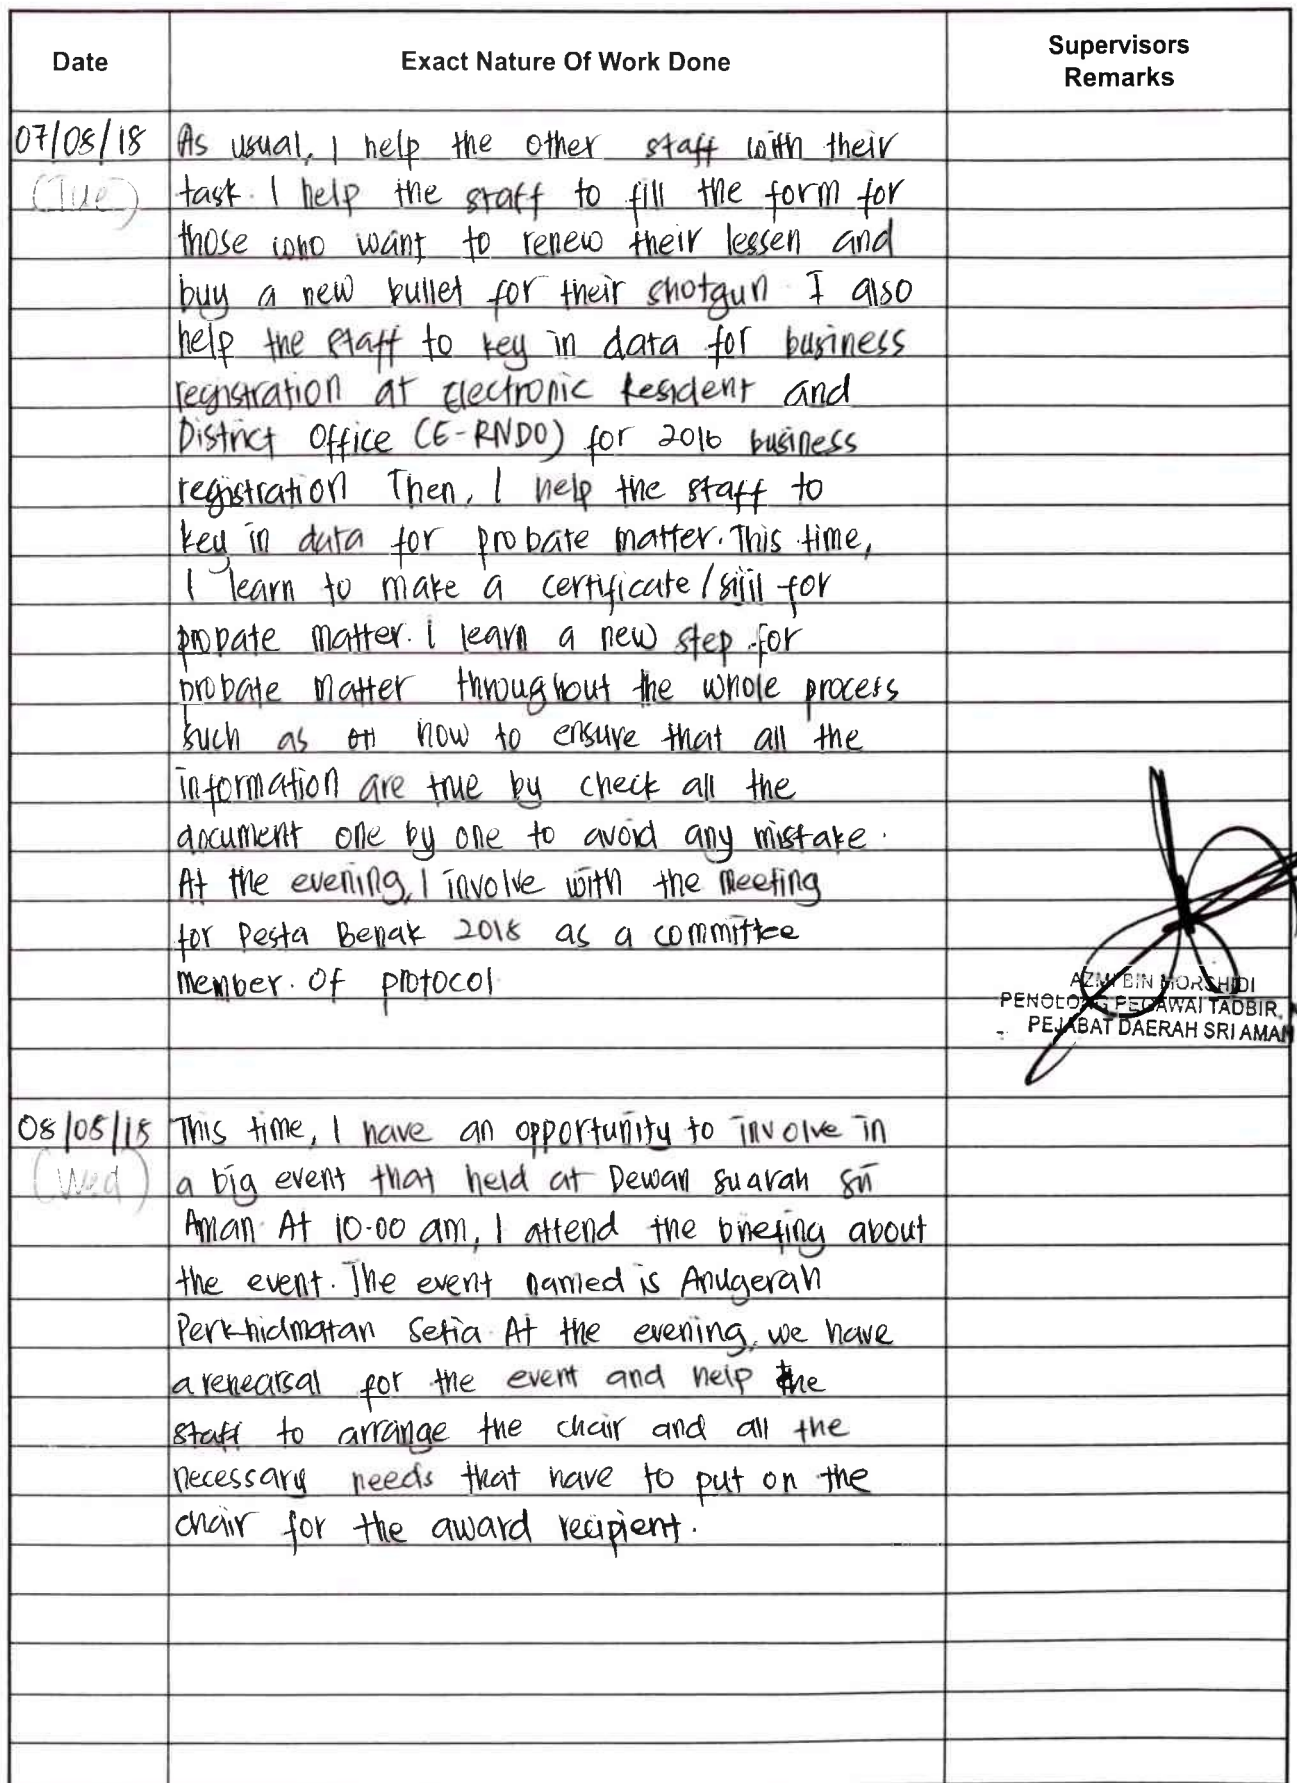 Date
Exact Nature Of Work Done
Supervisors
Remarks
07/08/18
(Tue)
As usual, I help the other staff with their
task. I help the staff to fill the form for
those who want to renew their lessen and
buy a new bullet for their shotgun. I also
help the staff to key in data for business
registration at Electronic Resident and
District Office (E-RNDO) for 2016 business
registration Then, I help the staff to
key in data for probate matter. This time,
I learn to make a certificate / sijil for
probate matter. I learn a new step for
probate matter throughout the whole process
such as how to ensure that all the
information are true by check all the
document one by one to avoid any mistake.
At the evening, I involve with the meeting
for Pesta Benak 2018 as a committee
member. Of protocol
AZMI BIN MORSHIDI
PENOLONG PEGAWAI TADBIR,
PEJABAT DAERAH SRI AMAN
08/08/18
(Wed)
This time, I have an opportunity to involve in
a big event that held at Dewan Suarah Sri
Aman. At 10.00 am, I attend the briefing about
the event. The event named is Anugerah
Perkhidmatan Setia. At the evening, we have
a rehearsal for the event and help the
staff to arrange the chair and all the
necessary needs that have to put on the
chair for the award recipient.